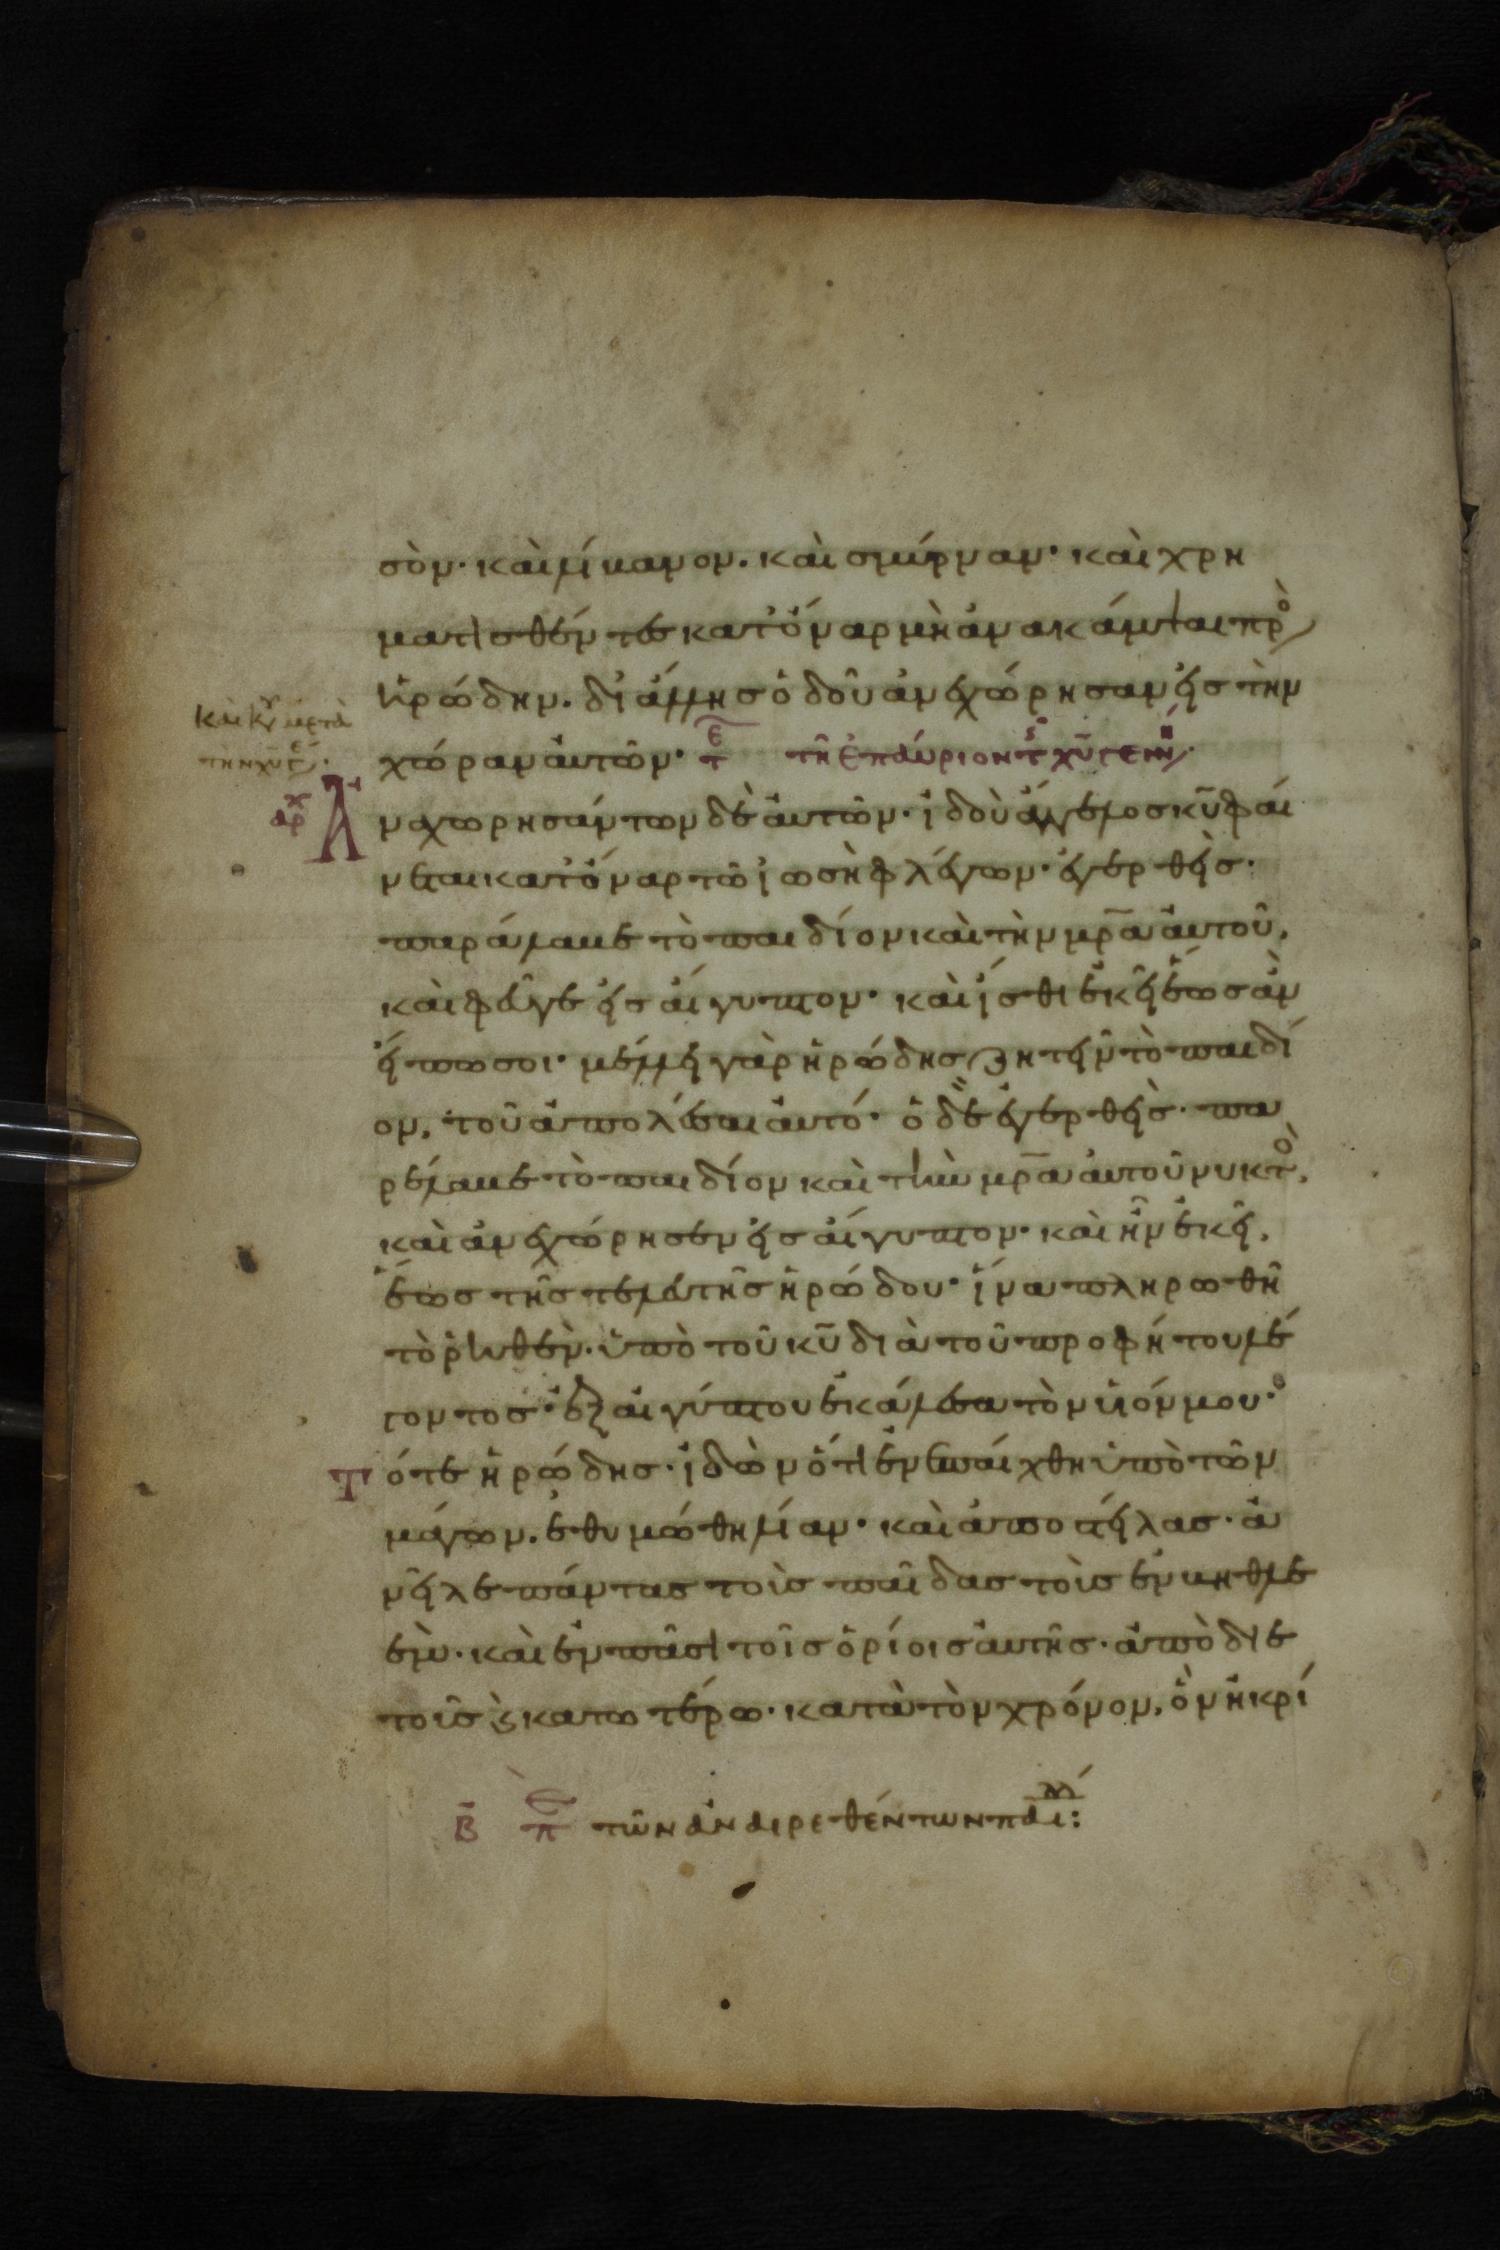 σὸν· καὶ λίβανον· καὶ σμύρναν· καὶ χρη
ματισθέντες κατ' ὄναρ μὴ ἀνακάμψαι πρὸ
ἡρώδην· δι' ἄλλης ὁδοῦ ἀνεχώρησαν εἰς τὴν
χώραν αὐτῶν· τε τῆ ἐπαύριον τ χυ γενν
καὶ κυ μετὰ
τὴν χυ γε
αρχ
Ἀ
ναχωρησάντων δὲ αὐτῶν· ἰδοὺ ἄγγελος κ̅υ̅ φαί
νεται κατ' ὄναρ τῶ ἰωσὴφ λέγων· ἐγερθεὶς·
παράλαβε τὸ παιδίον καὶ τὴν μ̅ρ̅α̅ αὐτοῦ,
καὶ φεῦγε εἰς αἴγυπτον· καὶ ἴσθι ἐκεῖ ἕως ἂν
εἴπω σοι· μέλλει γὰρ ἡρώδης ζητεῖν τὸ παιδί
ον, τοῦ ἀπολέσαι αὐτό· ὁ δὲ ἐγερθεὶς· πα
ρέλαβε τὸ παιδίον καὶ τὴν μ̅ρ̅α̅ αὐτοῦ νυκτὸ,
καὶ ἀνεχώρησεν εἰς αἴγυπτον· καὶ ἦν ἐκεῖ,
ἕως τῆς τελευτῆς ἡρώδου· ἵνα πληρωθῆ
τὸ ῥηθὲν· ὑπὸ τοῦ κ̅υ̅ διὰ τοῦ προφήτου λέ
γοντος· ἐξ αἰγύπτου ἐκάλεσα τὸν υἱόν μου·
Τότε ἡρώδης· ἰδὼν ὅτι ἐνεπαίχθη ὑπὸ τῶν
μάγων· ἐθυμώθη λίαν· καὶ ἀποστείλας· ἀ
νεῖλε πάντας τοὺς παῖδας τοὺς ἐν βηθλε
ὲμ· καὶ ἐν πᾶσι τοῖς ὁρίοις αὐτῆς· ἀπὸ διε
τοῦς ϗ κατωτέρω· κατὰ τὸν χρόνον, ὃν ἠκρί
Β̅ πε τῶν ἀναιρεθέντων παι: